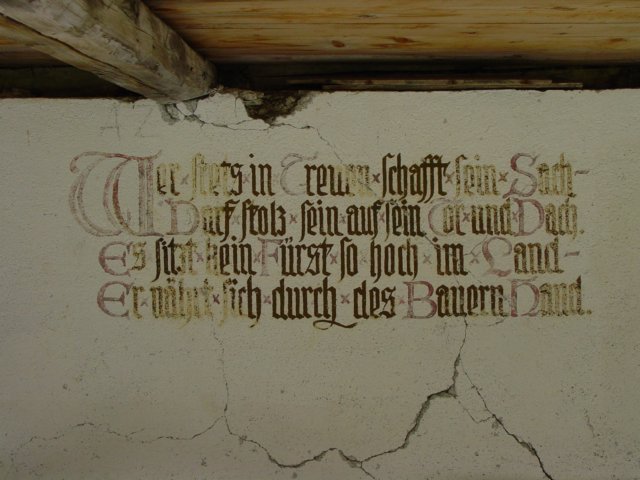 Wer stets in Treuen schafft sein Sach-
Darf stolz sein auf sein Tor und Dach.
Es sitzt kein Fürst so hoch im Land-
Er nährt sich durch des Bauern Hand.